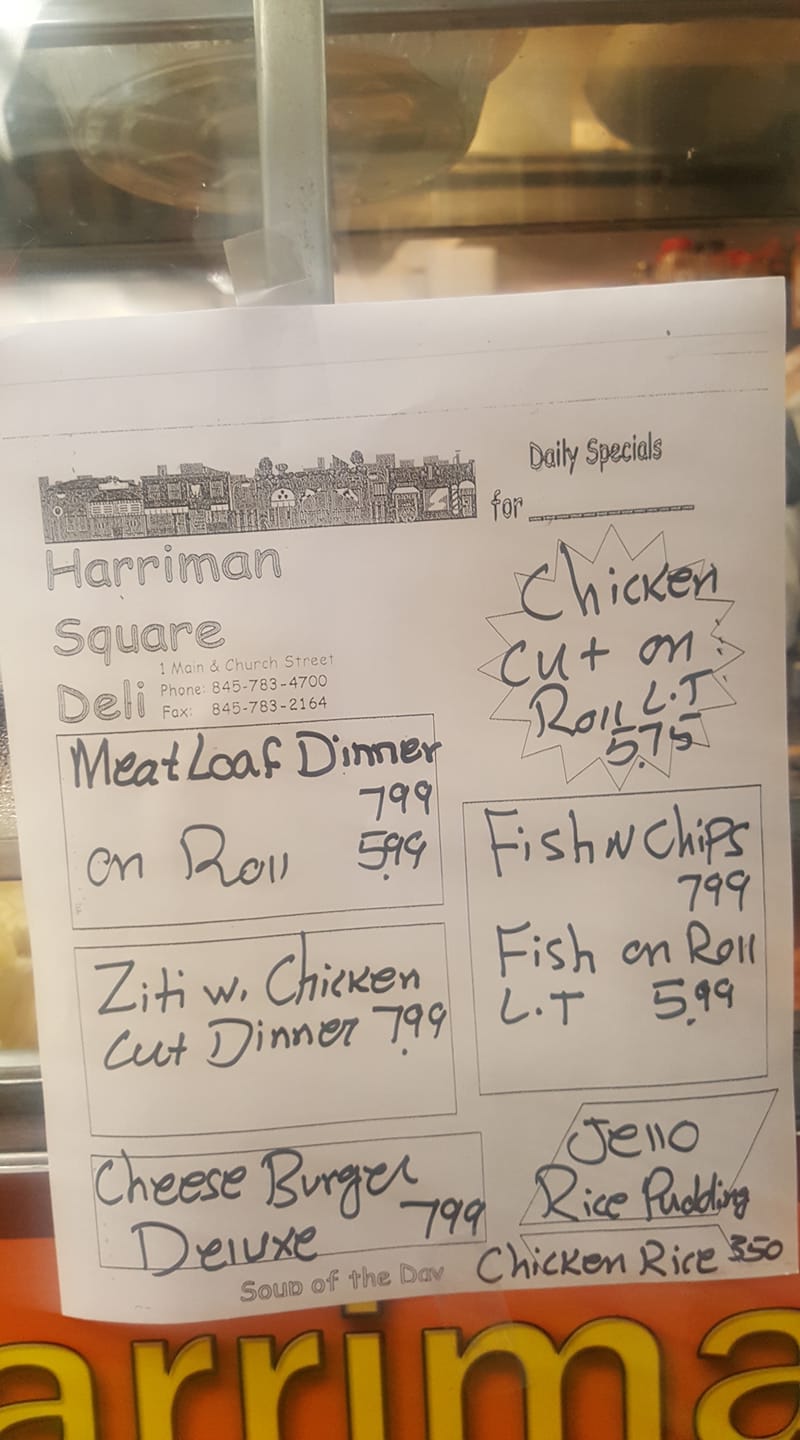 Daily Specials
for
Harriman
Square
Deli
1 Main & Church Street
Phone: 845-783-4700
Fax: 845-783-2164
Chicken
Cut on
Roll L.T
5.75
Meat Loaf Dinner
799
on Roll 5.99
Fish N Chips
799
Fish on Roll
L.T 5.99
Ziti w. Chicken
Cut Dinner 7.99
Cheese Burger
Deluxe 799
Jello
Rice Pudding
Soup of the Day
Chicken Rice 350
arrima